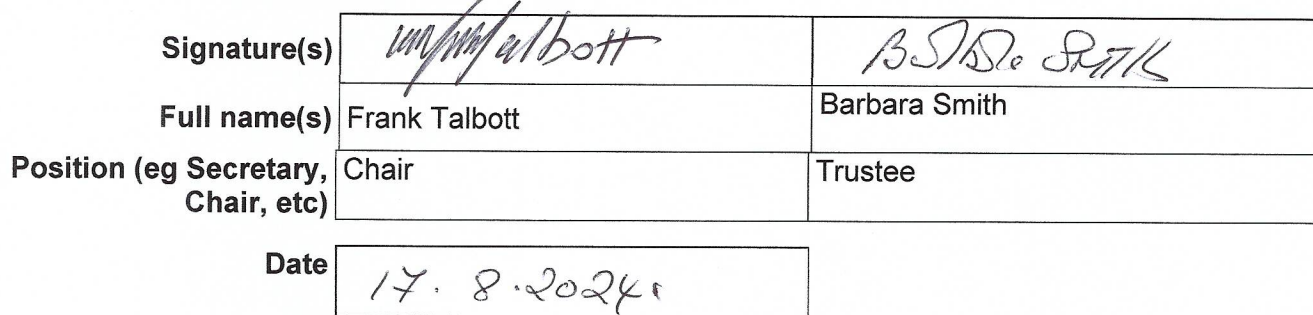 Signature(s) talbott Smith
Full name(s) Frank Talbott Barbara Smith
Position (eg Secretary, Chair Trustee
Chair, etc)
Date 17. 8.2024.